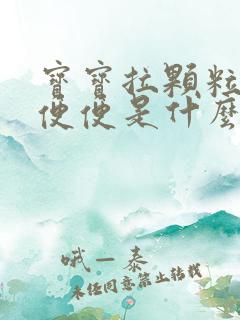 寶寶拉顆粒
便便是什麼
哦一泰
未經同意禁止轉載